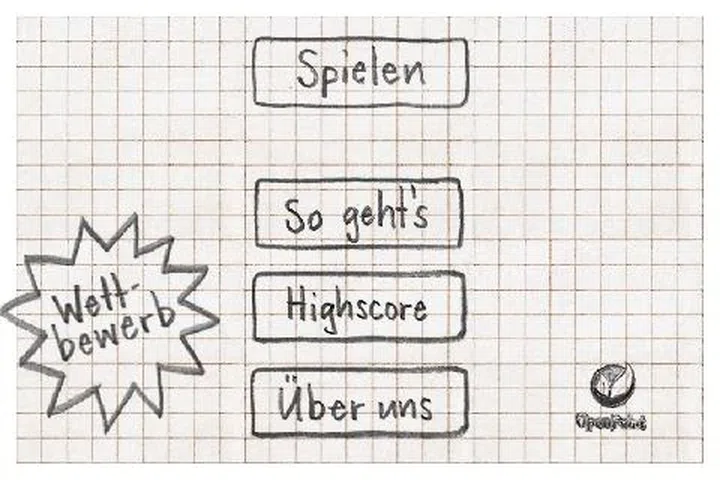 Spielen
So geht's
Highscore
Wett-
bewerb
Über uns